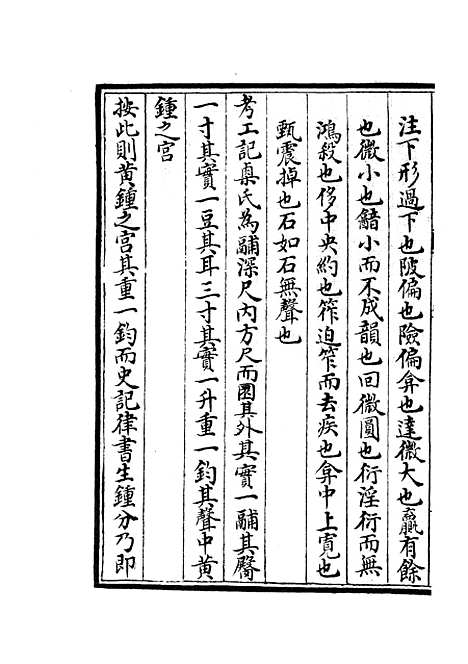 注下形過下也陂偏也險偏弇也達微大也贏有餘
也微小也韽小而不成韻也回微圓也衍淫衍而無
鴻殺也侈中央約也筰迫窄而去疾也弇中上寬也
甄震掉也石如石無聲也
考工記㮚氏為鬴深尺内方尺而圜其外其實一鬴其臀
一寸其實一豆其耳三寸其實一升重一鈞其聲中黄
鍾之宫
按此則黄鍾之宫其重一鈞而史記律書生鍾分乃即